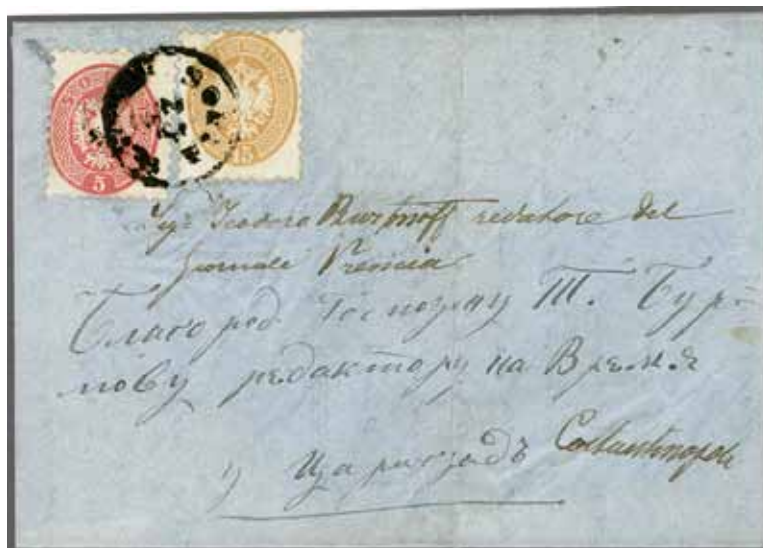 5 SOLDI 15 SOLDI
SOFIA
Sigr Teodoro Burmoff redatore del
giornale Vremia
Благород. Господину Т. Бур-
мову редактору на Время
у Цариградъ Costantinopoli